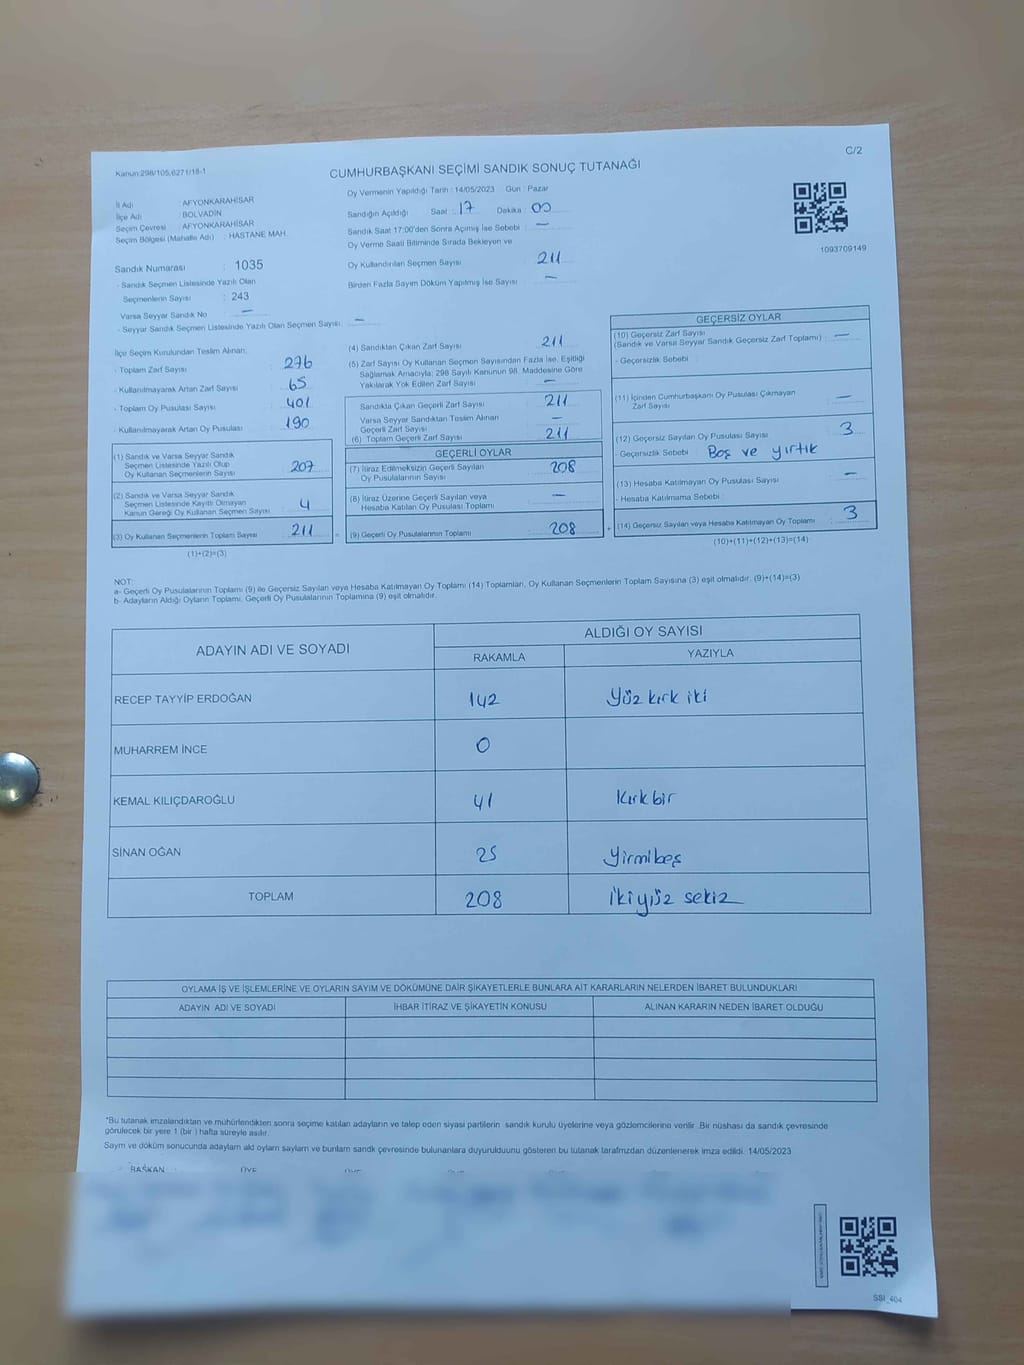 C/2
Kanun:298/105,6271/18-1
CUMHURBAŞKANI SEÇİMİ SANDIK SONUÇ TUTANAĞI
İl Adı : AFYONKARAHİSAR
İlçe Adı : BOLVADİN
Seçim Çevresi : AFYONKARAHİSAR
Seçim Bölgesi (Mahalle Adı) : HASTANE MAH.
Sandık Numarası : 1035
- Sandık Seçmen Listesinde Yazılı Olan
Seçmenlerin Sayısı : 243
Varsa Seyyar Sandık No : —
- Seyyar Sandık Seçmen Listesinde Yazılı Olan Seçmen Sayısı: —
Oy Vermenin Yapıldığı Tarih : 14/05/2023 Gün : Pazar
Sandığın Açıldığı Saat : 17 Dakika : 00
Sandık Saat 17:00'den Sonra Açılmış İse Sebebi : —
Oy Verme Saati Bitiminde Sırada Bekleyen ve
Oy Kullandırılan Seçmen Sayısı : 211
Birden Fazla Sayım Döküm Yapılmış İse Sayısı : —
1093709149
İlçe Seçim Kurulundan Teslim Alınan;
- Toplam Zarf Sayısı : 276
- Kullanılmayarak Artan Zarf Sayısı : 65
- Toplam Oy Pusulası Sayısı : 401
- Kullanılmayarak Artan Oy Pusulası : 190
(1) Sandık ve Varsa Seyyar Sandık
Seçmen Listesinde Yazılı Olup
Oy Kullanan Seçmenlerin Sayısı : 207
(2) Sandık ve Varsa Seyyar Sandık
Seçmen Listesinde Kayıtlı Olmayan
Kanun Gereği Oy Kullanan Seçmen Sayısı : 4
(3) Oy Kullanan Seçmenlerin Toplam Sayısı : 211 =
(1)+(2)=(3)
(4) Sandıktan Çıkan Zarf Sayısı : 211
(5) Zarf Sayısı Oy Kullanan Seçmen Sayısından Fazla İse, Eşitliği
Sağlamak Amacıyla; 298 Sayılı Kanunun 98. Maddesine Göre
Yakılarak Yok Edilen Zarf Sayısı : —
Sandıkta Çıkan Geçerli Zarf Sayısı : 211
Varsa Seyyar Sandıktan Teslim Alınan
Geçerli Zarf Sayısı : —
(6) Toplam Geçerli Zarf Sayısı : 211
GEÇERLİ OYLAR
(7) İtiraz Edilmeksizin Geçerli Sayılan
Oy Pusulalarının Sayısı : 208
(8) İtiraz Üzerine Geçerli Sayılan veya
Hesaba Katılan Oy Pusulası Toplamı : —
(9) Geçerli Oy Pusulalarının Toplamı : 208 +
GEÇERSİZ OYLAR
(10) Geçersiz Zarf Sayısı
(Sandık ve Varsa Seyyar Sandık Geçersiz Zarf Toplamı) : —
- Geçersizlik Sebebi :
(11) İçinden Cumhurbaşkanı Oy Pusulası Çıkmayan
Zarf Sayısı : —
(12) Geçersiz Sayılan Oy Pusulası Sayısı : 3
- Geçersizlik Sebebi : Boş ve yırtık
(13) Hesaba Katılmayan Oy Pusulası Sayısı : —
- Hesaba Katılmama Sebebi :
(14) Geçersiz Sayılan veya Hesaba Katılmayan Oy Toplamı : 3
(10)+(11)+(12)+(13)=(14)
NOT:
a- Geçerli Oy Pusulalarının Toplamı (9) ile Geçersiz Sayılan veya Hesaba Katılmayan Oy Toplamı (14) Toplamları, Oy Kullanan Seçmenlerin Toplam Sayısına (3) eşit olmalıdır. (9)+(14)=(3)
b- Adayların Aldığı Oyların Toplamı, Geçerli Oy Pusulalarının Toplamına (9) eşit olmalıdır.
ADAYIN ADI VE SOYADI ALDIĞI OY SAYISI
RAKAMLA YAZIYLA
RECEP TAYYİP ERDOĞAN 142 Yüz kırk iki
MUHARREM İNCE 0
KEMAL KILIÇDAROĞLU 41 Kırk bir
SİNAN OĞAN 25 Yirmibeş
TOPLAM 208 İkiyüz sekiz
OYLAMA İŞ VE İŞLEMLERİNE VE OYLARIN SAYIM VE DÖKÜMÜNE DAİR ŞİKAYETLERLE BUNLARA AİT KARARLARIN NELERDEN İBARET BULUNDUKLARI
ADAYIN ADI VE SOYADI İHBAR İTİRAZ VE ŞİKAYETİN KONUSU ALINAN KARARIN NEDEN İBARET OLDUĞU
*Bu tutanak imzalandıktan ve mühürlendikten sonra seçime katılan adayların ve talep eden siyasi partilerin sandık kurulu üyelerine veya gözlemcilerine verilir. Bir nüshası da sandık çevresinde
görülecek bir yere 1 (bir ) hafta süreyle asılır.
Sayım ve döküm sonucunda adayların aldı oyların sayıları ve bunların sandık çevresinde bulunanlara duyurulduunu gösteren bu tutanak tarafımızdan düzenlenerek imza edildi. 14/05/2023
BAŞKAN ÜYE
SSI_404